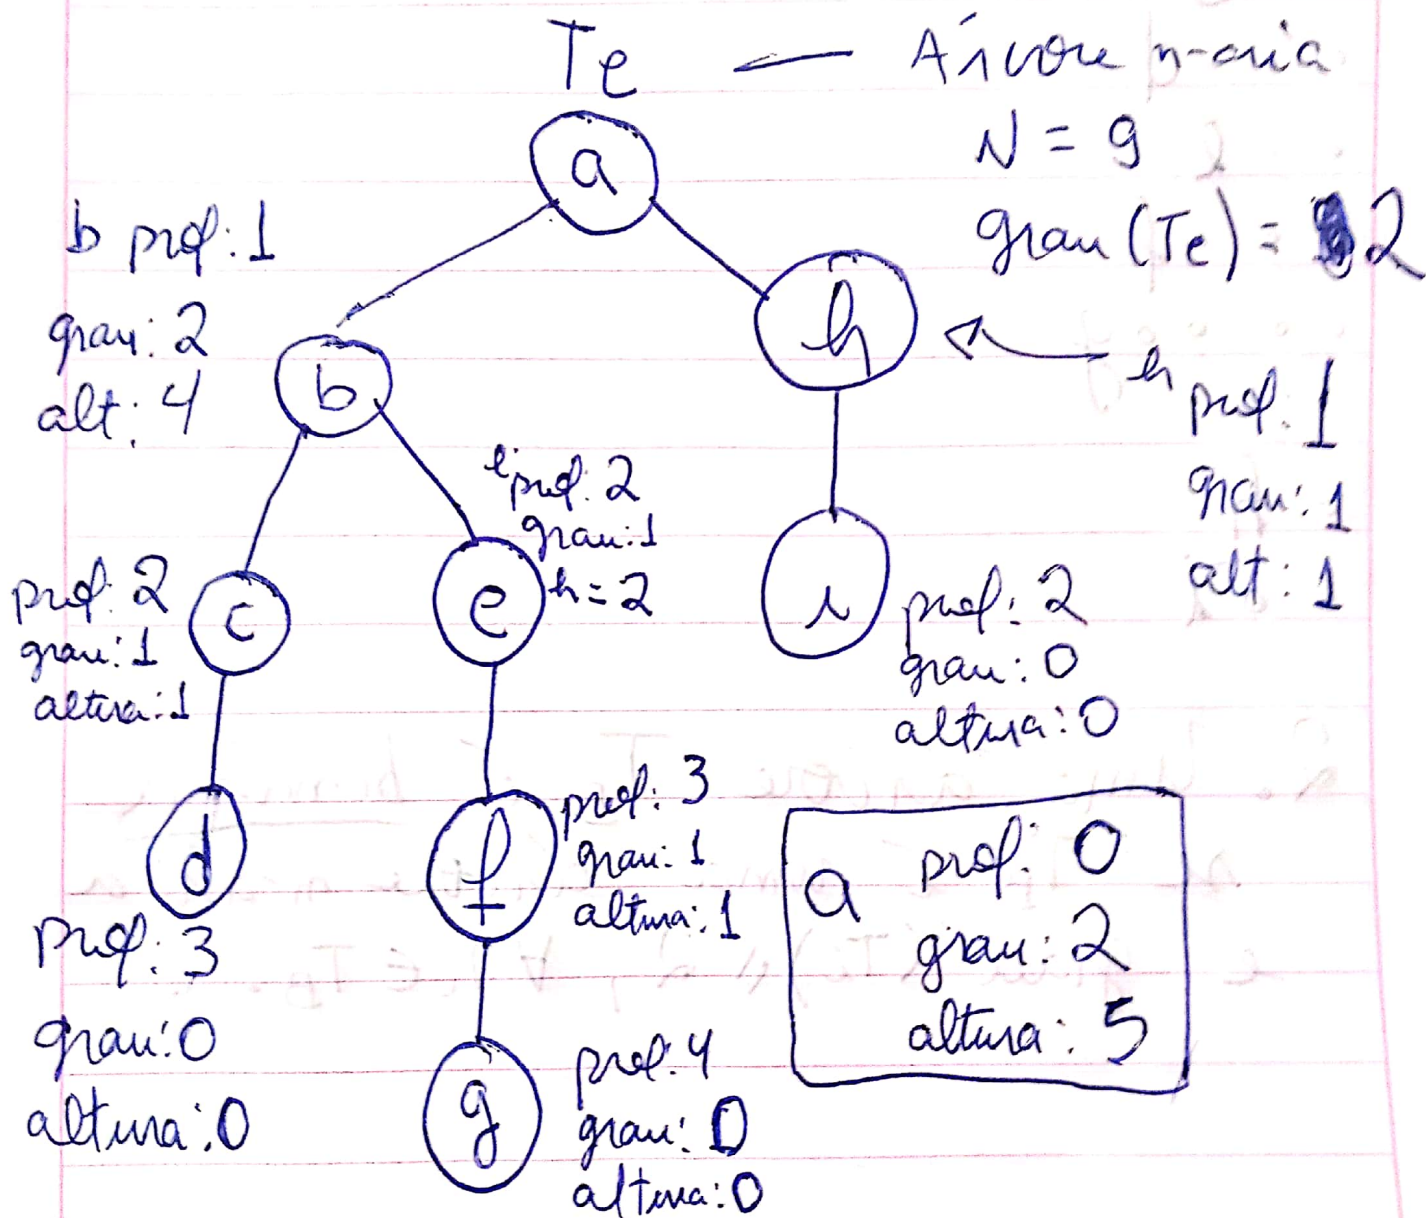 Te ← Árvore n-ária
N = 9
grau (Te) = 2
a
b prof: 1
grau: 2
alt: 4
b
h
h prof: 1
grau: 1
alt: 1
e prof: 2
grau: 1
h = 2
prof: 2
grau: 1
altura: 1
c
e
i
prof: 2
grau: 0
altura: 0
d
prof: 3
grau: 0
altura: 0
f
prof: 3
grau: 1
altura: 1
g
prof: 4
grau: 0
altura: 0
a prof: 0
grau: 2
altura: 5